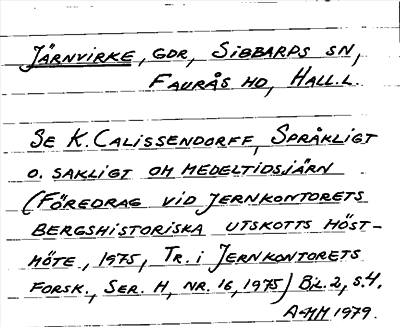 JÄRNVIRKE, GDR, SIBBARPS SN,
FAURÅS HD, HALL.L.
SE K. CALISSENDORFF, SPRÅKLIGT
O. SAKLIGT OM MEDELTIDSJÄRN
(FÖREDRAG VID JERNKONTORETS
BERGSHISTORISKA UTSKOTTS HÖST-
MÖTE, 1975, TR. I JERNKONTORETS
FORSK., SER. H, NR. 16, 1975) BIL. 2, S.4.
A-MM 1979.